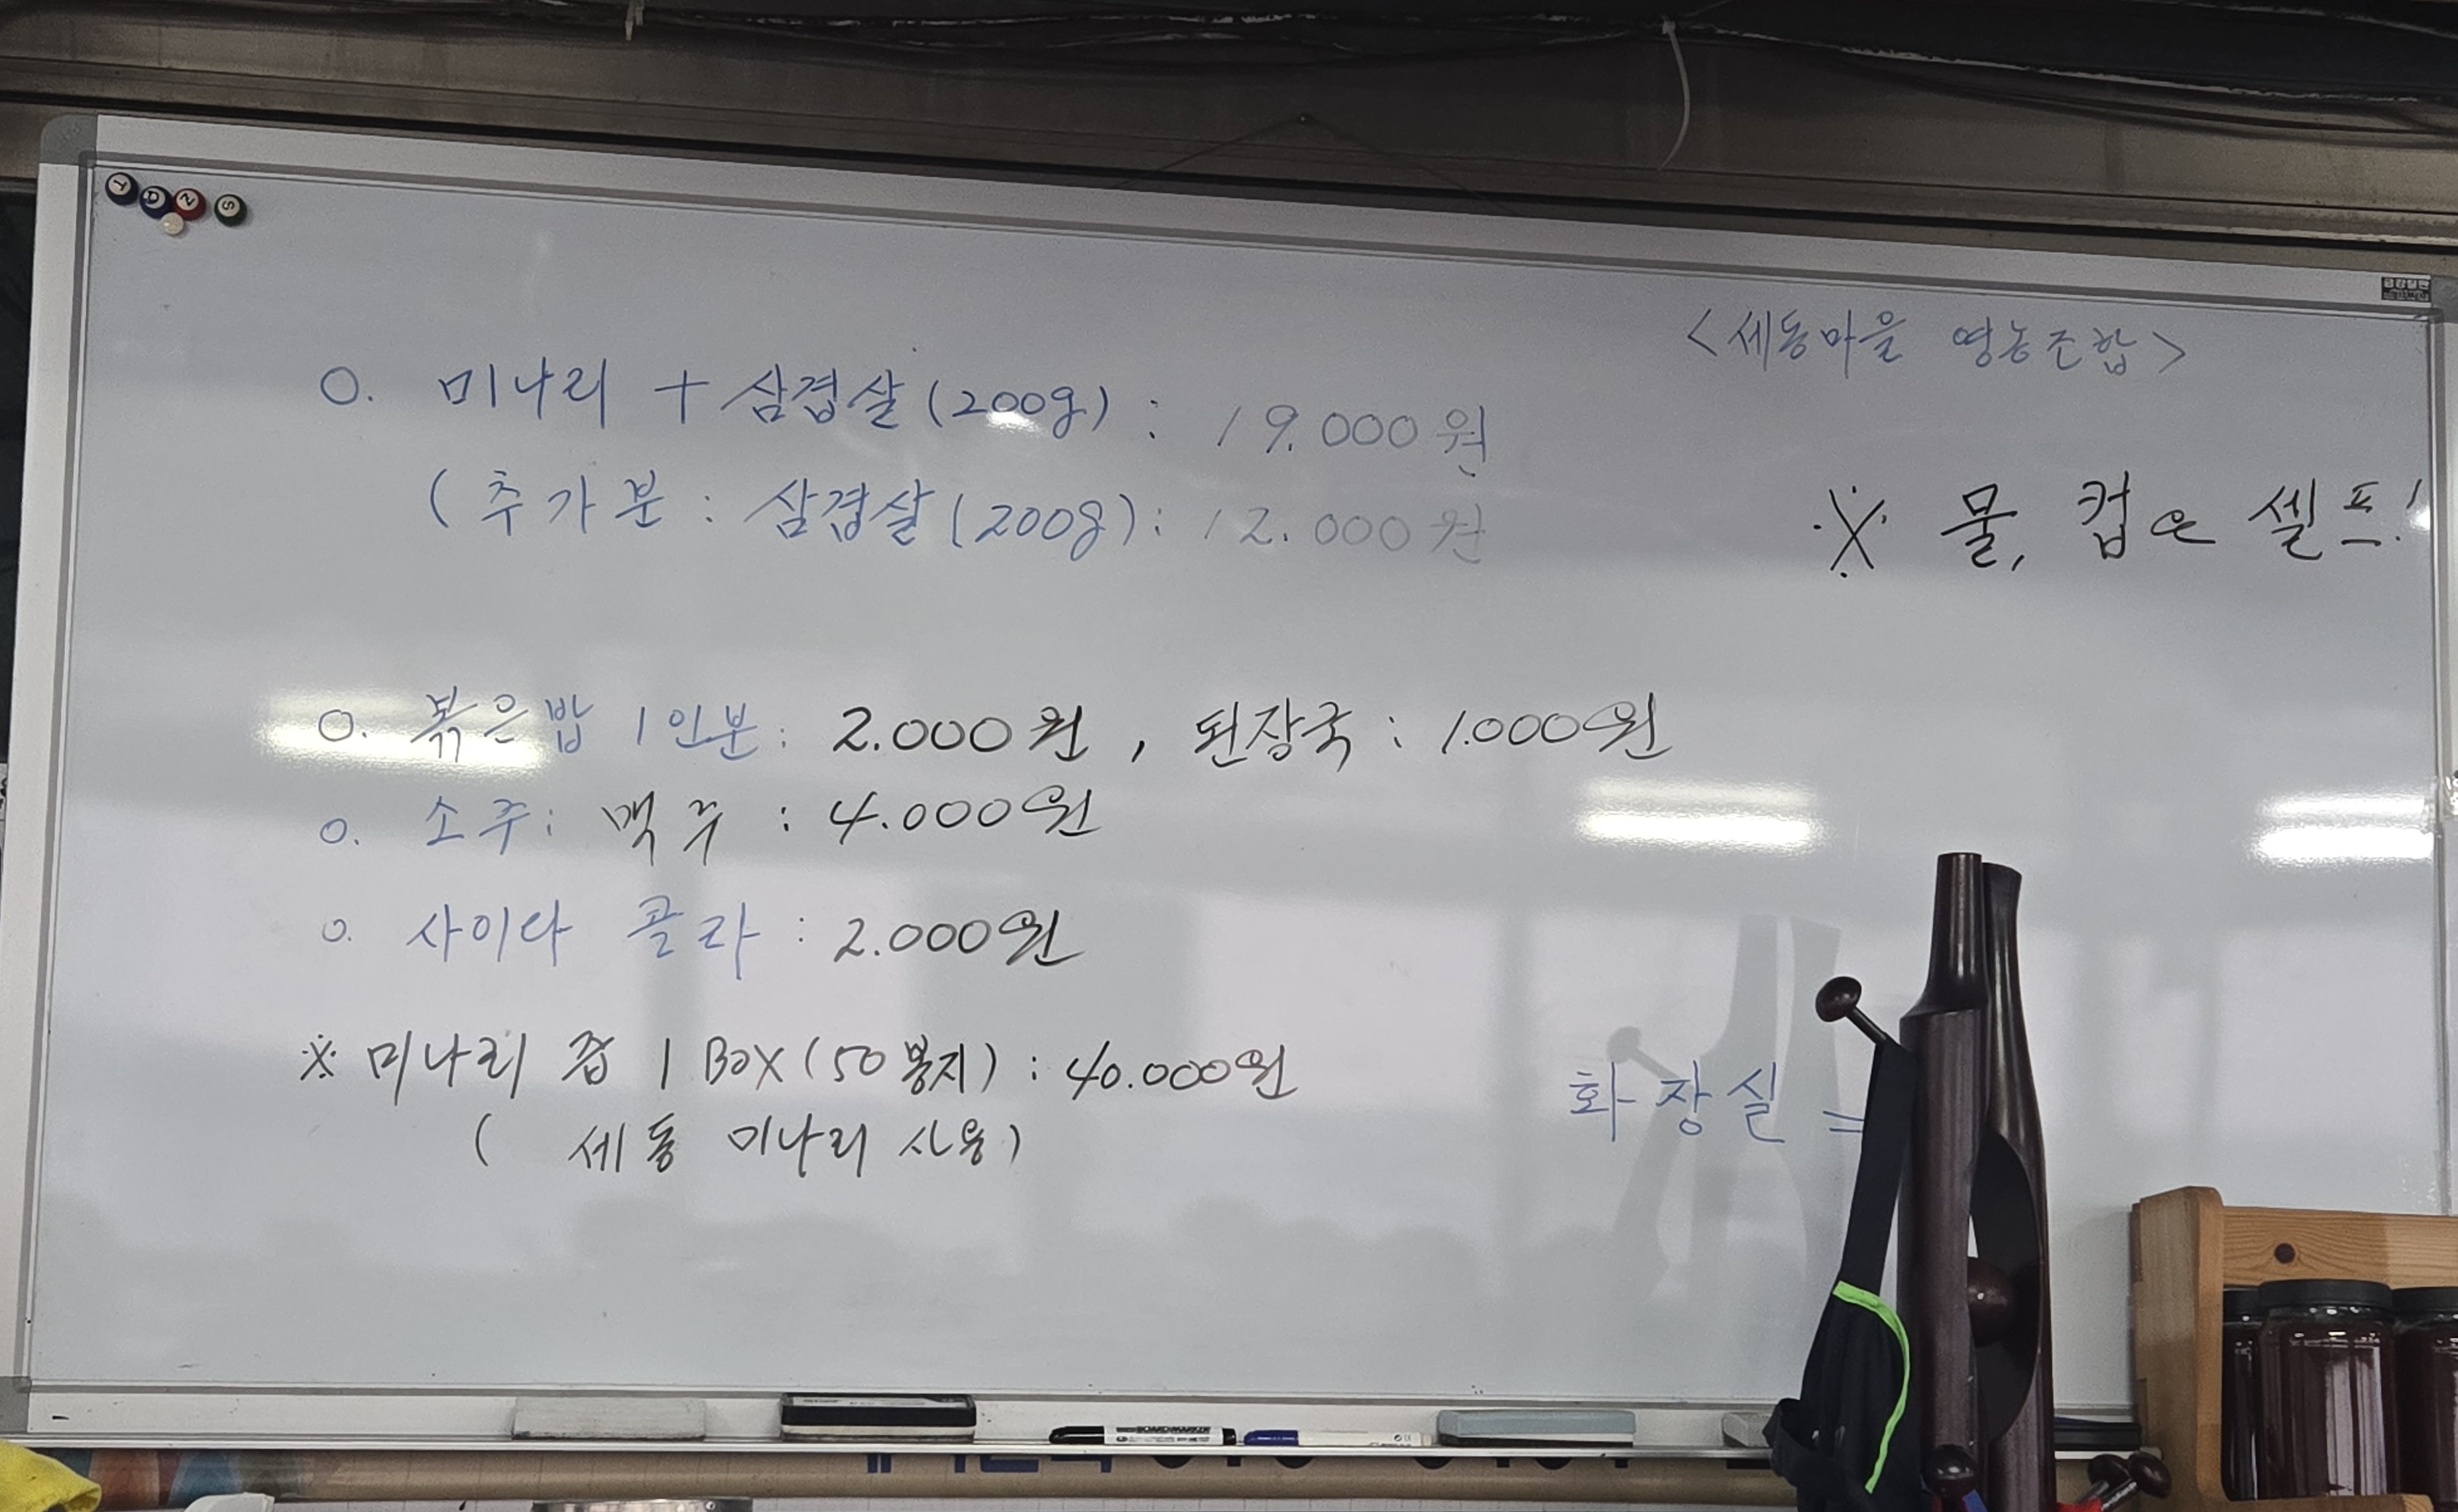 <세동마을 영농조합>
O. 미나리 + 삼겹살(200g) : 19.000원
(추가분 : 삼겹살(200g) : 12.000원
※ 물, 컵은 셀프!
O. 볶은밥 1인분 : 2.000원 , 된장국 : 1.000원
O. 소주: 맥주 : 4.000원
O. 사이다 콜라 : 2.000원
※ 미나리 즙 1 BOX(50봉지) : 40.000원
( 세동 미나리 사용)
화장실 =
BOARDMARKER